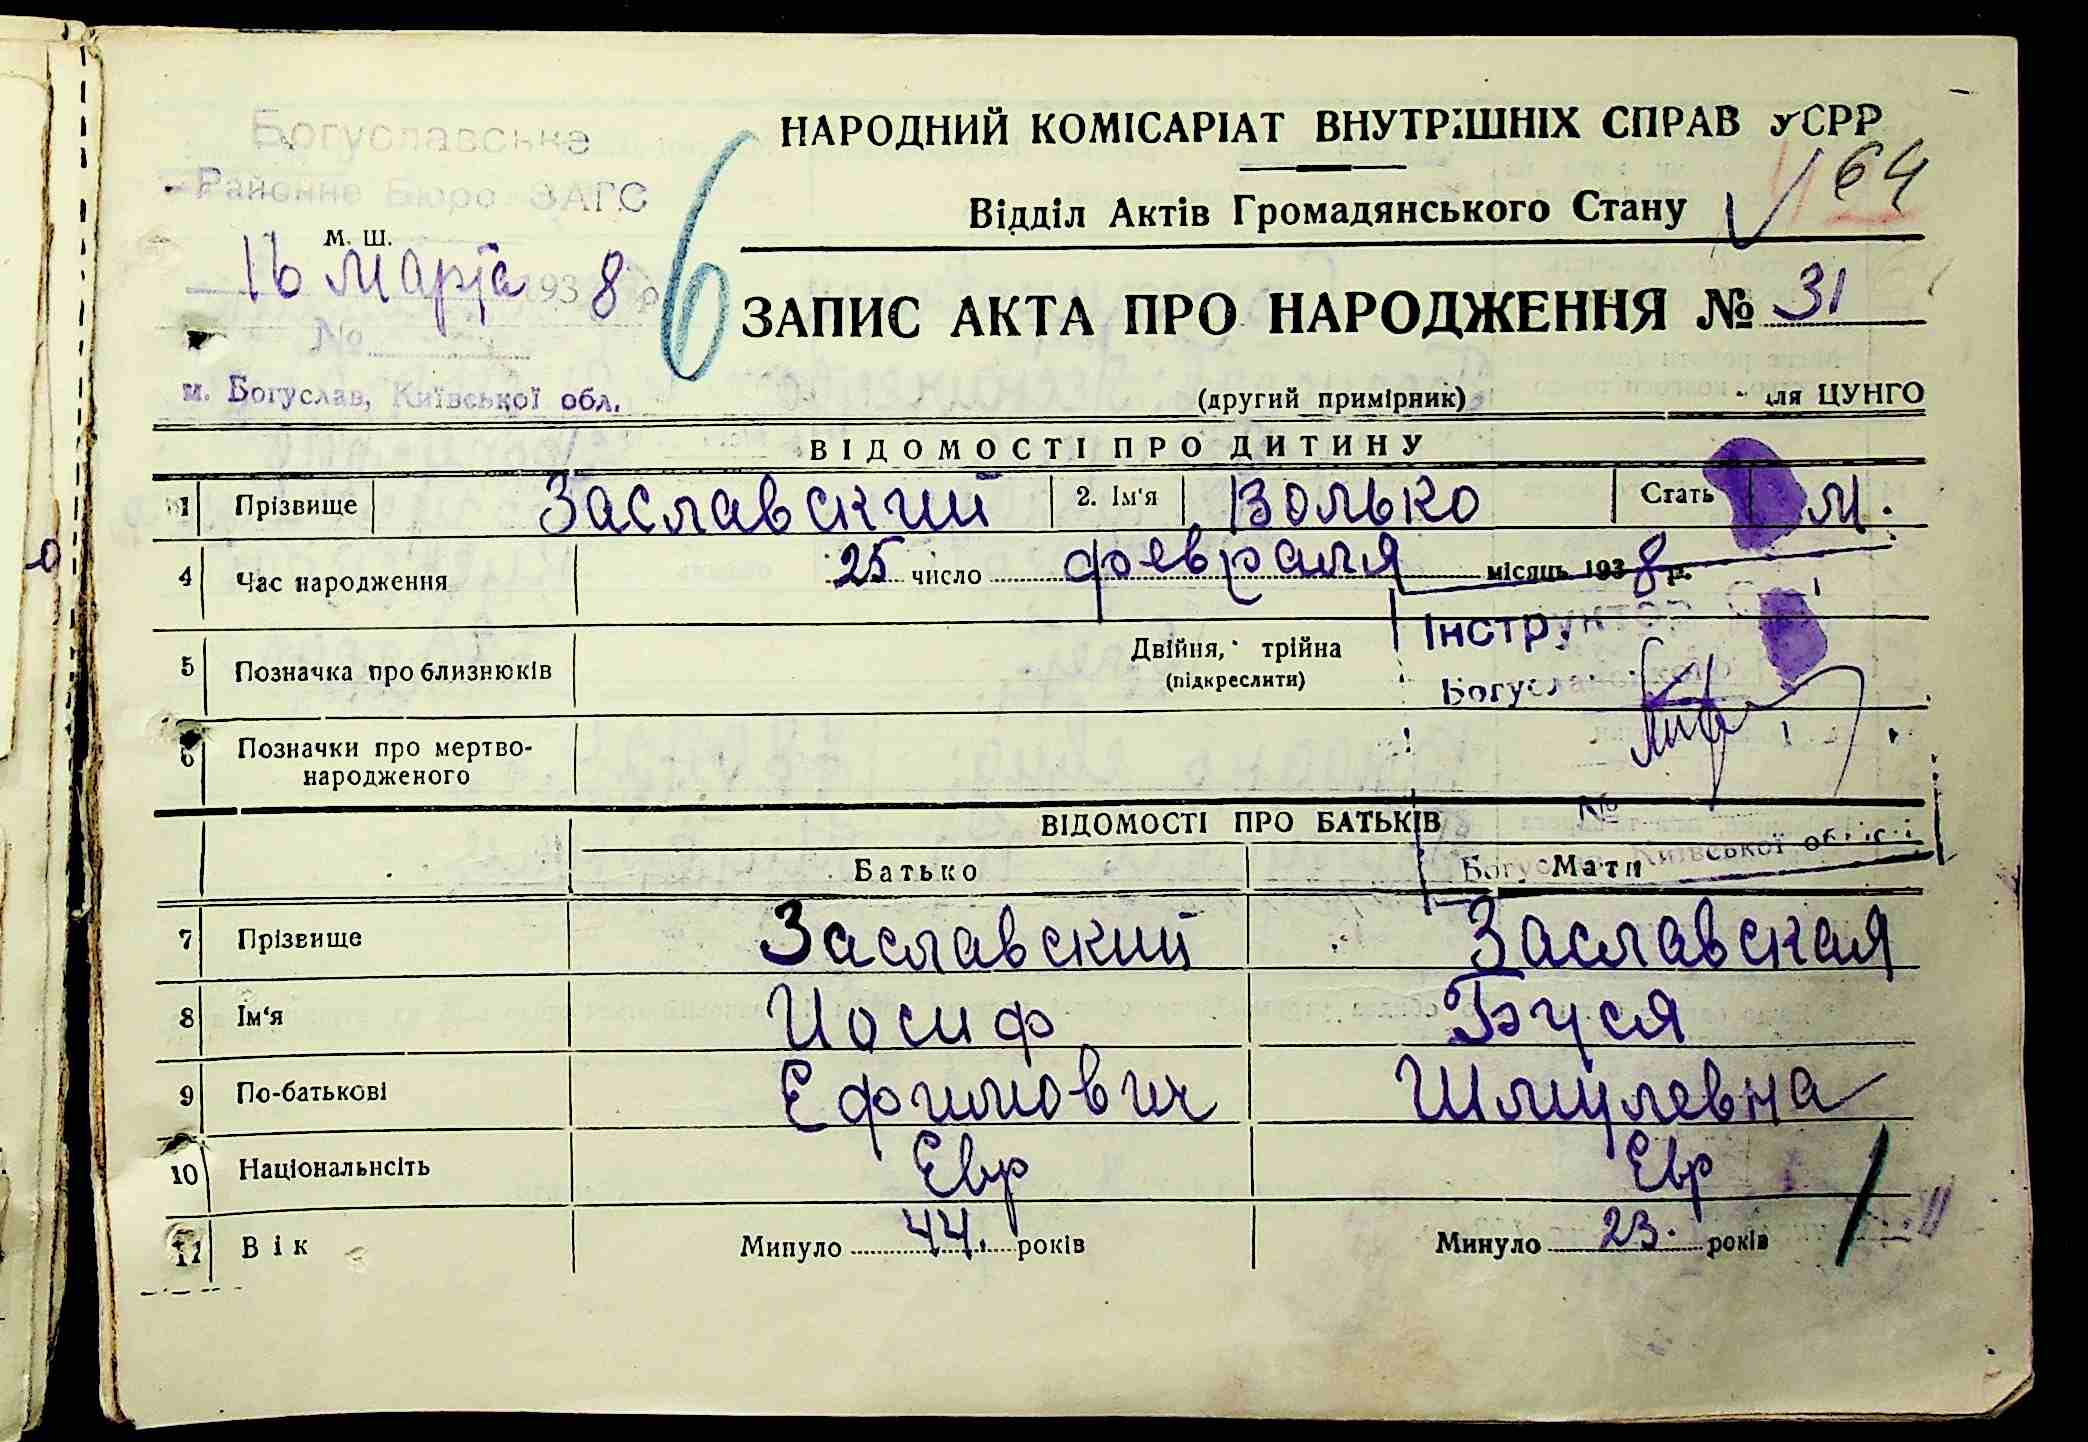 Богуславське
НАРОДНИЙ КОМІСАРІАТ ВНУТРІШНІХ СПРАВ УСРР
Районне Бюро ЗАГС
64
Відділ Актів Громадянського Стану
М. Ш.
16 марта 1938 р
6
ЗАПИС АКТА ПРО НАРОДЖЕННЯ № 31
№
м. Богуслав, Київської обл.
(другий примірник)
для ЦУНГО
ВІДОМОСТІ ПРО ДИТИНУ
1 Прізвище Заславский 2. Ім'я Волько Стать м.
4 Час народження 25 число февраля місяць 1938 р.
Інструктор
5 Позначка про близнюків Двійня, трійна
(підкреслити)
Богуславського
6 Позначки про мертво-
народженого
№
ВІДОМОСТІ ПРО БАТЬКІВ
Богуслав Київської області
Батько Мати
7 Прізвище Заславский Заславская
8 Ім'я Иосиф Буся
9 По-батькові Ефимович Шмулевна
10 Національнсіть Евр Евр
11 Вік Минуло 44. років Минуло 23. років